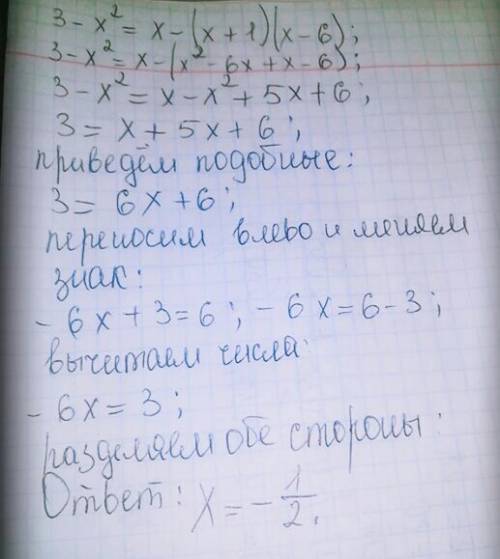 3 - x² = x - (x + 1)(x - 6);
3 - x² = x - (x² - 6x + x - 6);
3 - x² = x - x² + 5x + 6;
3 = x + 5x + 6;
приведём подобные:
3 = 6x + 6;
переносим влево и меняем
знак:
- 6x + 3 = 6; - 6x = 6 - 3;
вычитаем числа:
- 6x = 3;
разделяем обе стороны:
Ответ: x = - 1/2.